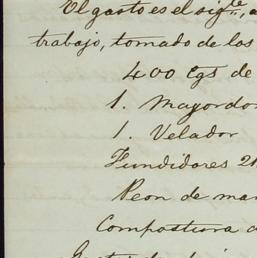 El gasto es el sigte., a
trabajo, tomado de los
400 Cgs de
1. Mayordo
1. Velador
Fundidores 2
Peon de ma
Compostura